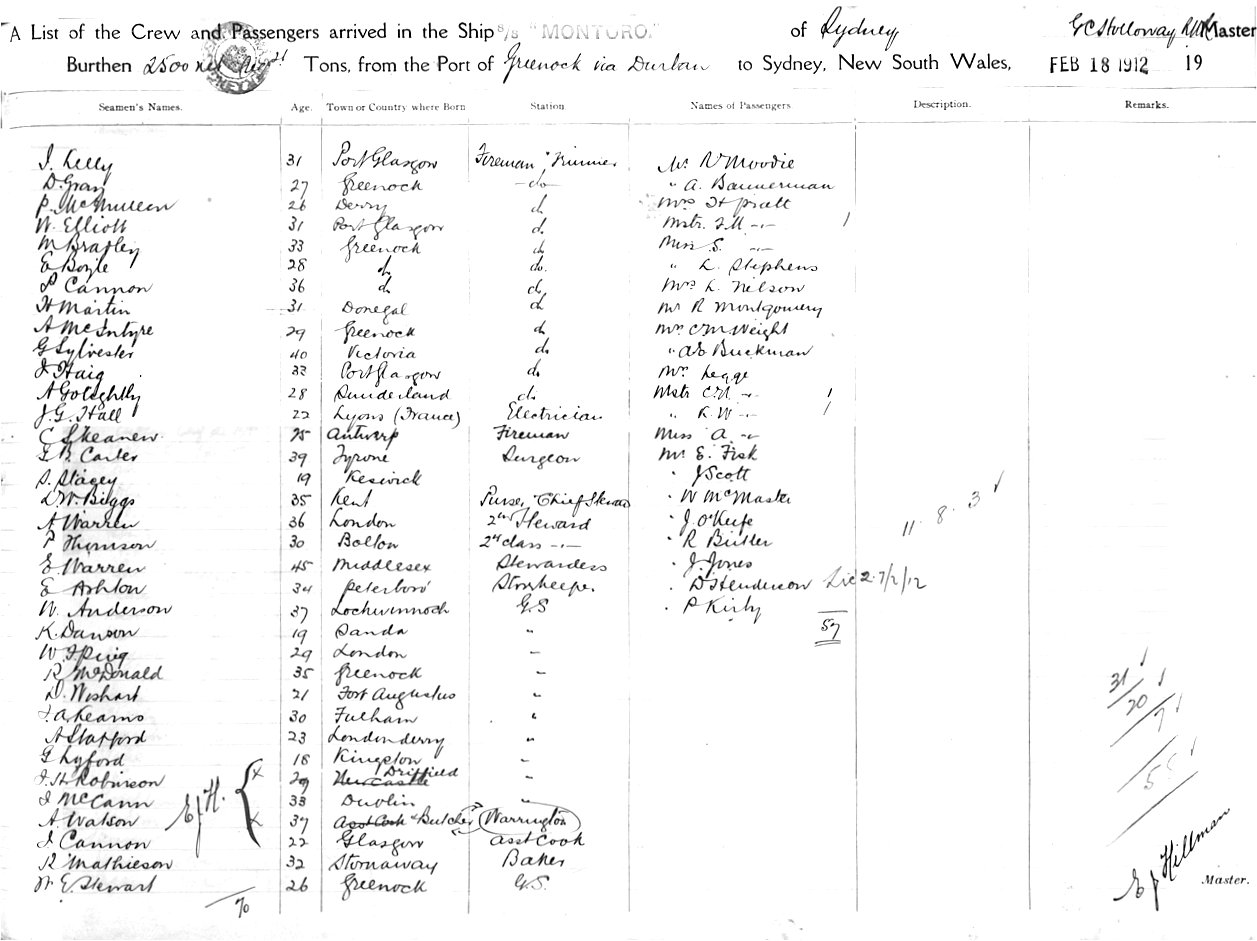 A List of the Crew and Passengers arrived in the Ship S/S "MONTORO." of Sydney G C Holloway RNR Master
Burthen 2500 net Tons, from the Port of Greenock via Durban to Sydney, New South Wales, FEB 18 1912 19
Seamen's Names. Age. Town or Country where Born Station Names of Passengers. Description. Remarks.
J. Kelly 31 Port Glasgow Fireman & Trimmer Mr R Moodie
D. Gray 27 Greenock -do- " A. Bannerman
P. McMullen 26 Derry do. Mrs H Pratt
W. Elliott 31 Port Glasgow do. Mstr. F.M. -"-
M Bradley 33 Greenock do Miss S. -"-
E Boyle 28 do do. " L. Stephens
P Cannon 36 do do, Mrs L. Nelson
H Martin 31 Donegal do Mr R Montgomery
A McIntyre 29 Greenock do Mr. C M Weight
G Sylvester 40 Victoria do. " A E Buckman
J Haig 33 Port Glasgow do. Mrs Legge
A Golightly 28 Sunderland do. Mstr C.N. -"-
J.G. Hall 22 Lyons (France) Electrician " R.W -"-
C Skeanew 25 Antwerp Fireman Miss A. -"-
G.B. Carter 39 Tyrone Surgeon Mr E. Fisk
S. Stacey 19 Keswick " J Scott
D.W. Biggs 35 Kent Purser & Chief Steward " W McMaster 11. 8. 3
A Warren 36 London 2nd Steward " J. O'Keefe
P Thomson 30 Bolton 2nd class -"- " R Butler
E Warren 45 Middlesex Stewardess " J. Jones
E Ashton 34 Peterboro' Storekeeper " D Henderson 27/2/12
W. Anderson 37 Lochwinnoch G.S " P Kirby
K. Dawson 19 Sanda " 57
W. J. Ping 29 London "
R McDonald 35 Greenock " 31
D. Wishart 21 Fort Augustus " 20
J. A. Kearns 30 Fulham " 7
A Stafford 23 Londonderry "
G Lyford 18 Kingston "
J. H. Robinson x 29 Newcastle Driffield " 55
J McCann E J H. 33 Dublin "
A Watson x 37 Asst Cook & Butcher Warrington
J Cannon 22 Glasgow Asst Cook
R Mathieson 32 Stornaway Baker
W. E. Stewart 26 Greenock G.S. E J Hillman Master.
70